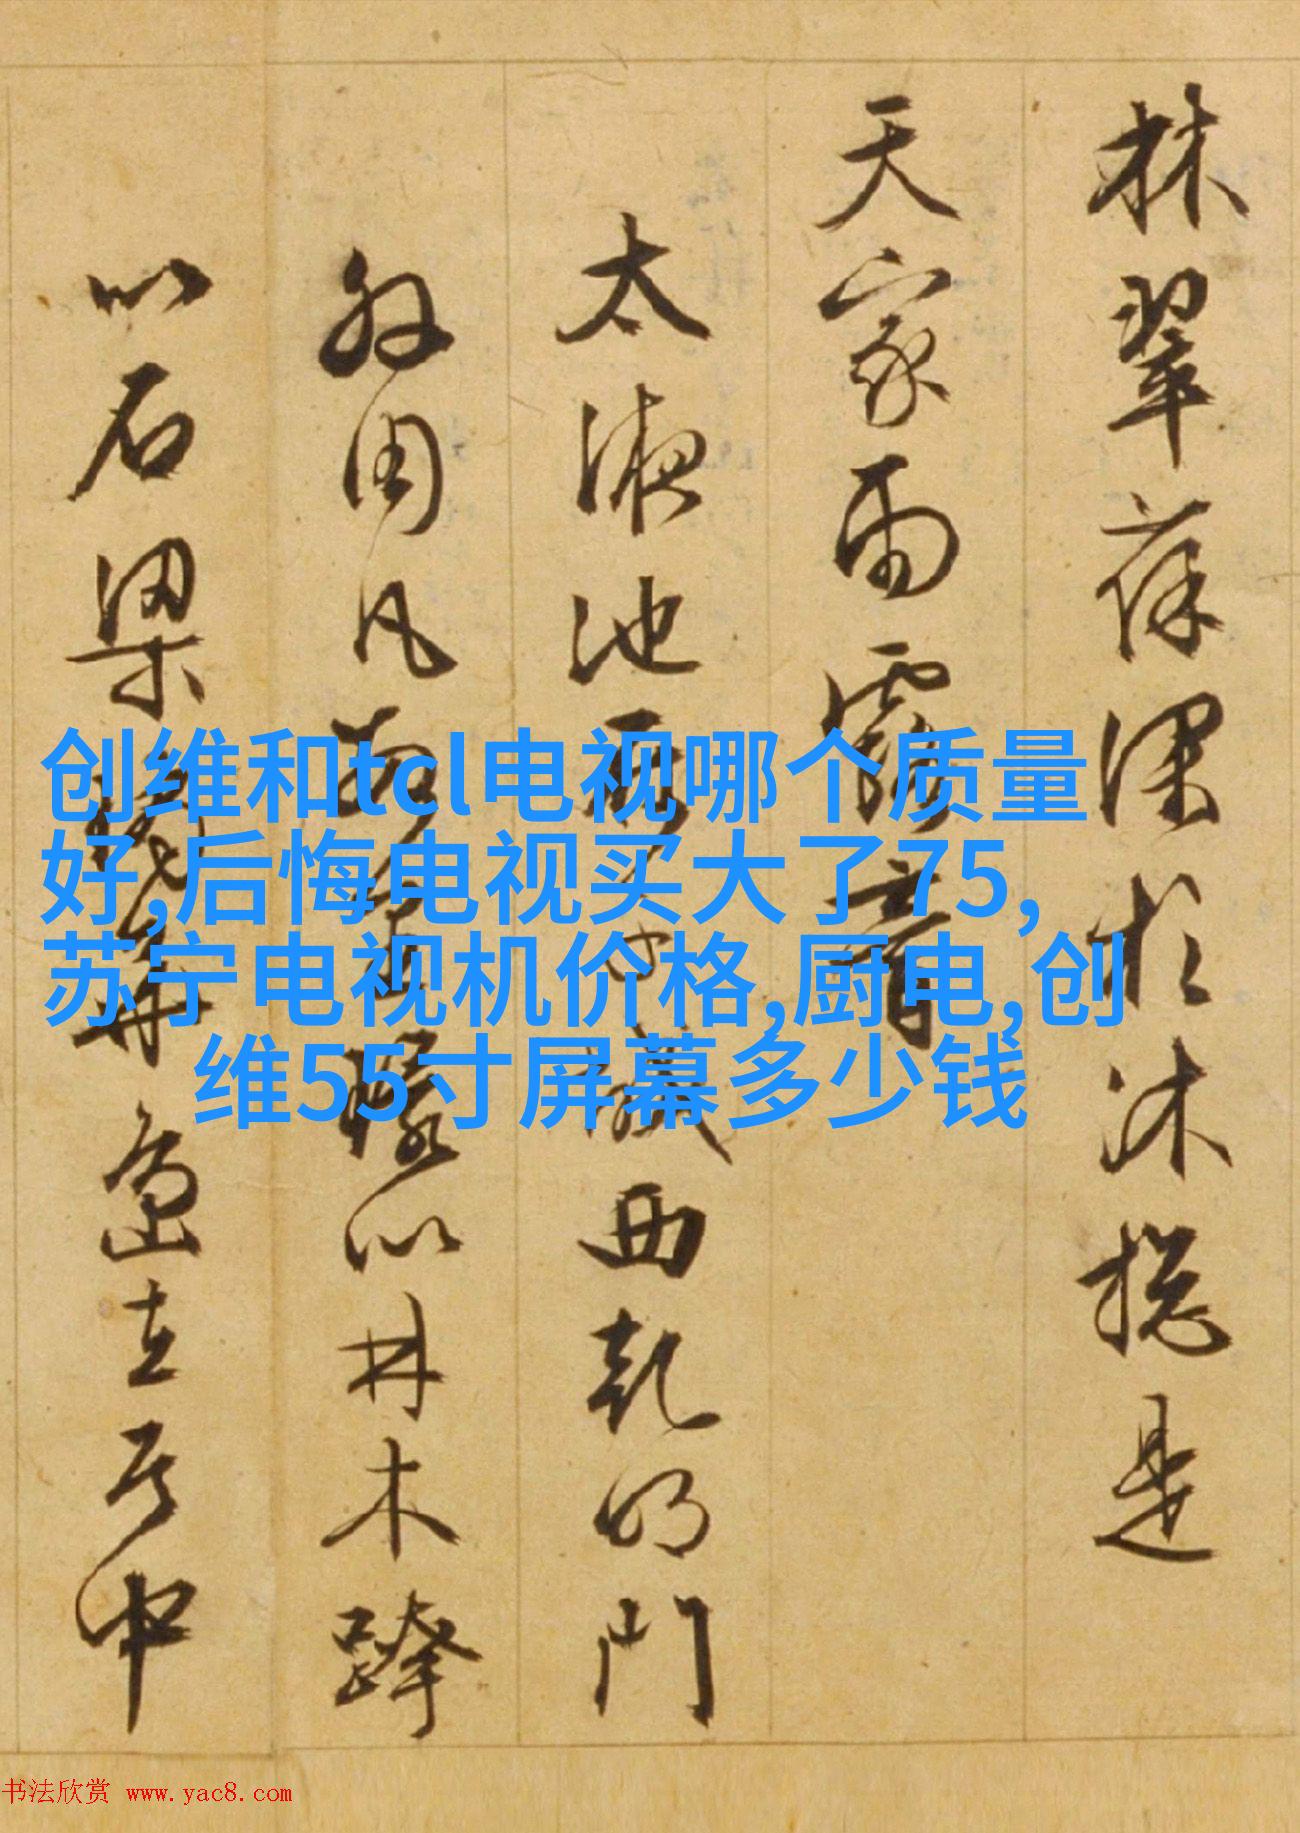 林翠葆深於沐揔是
天家雨露膏
太液池在子城西乾明門
外周凡以林木跨
以石梁瓊華島立其中
创维和tcl电视哪个质量
好,后悔电视买大了75,
苏宁电视机价格,厨电,创
维55寸屏幕多少钱
书法欣赏 www.yac8.com